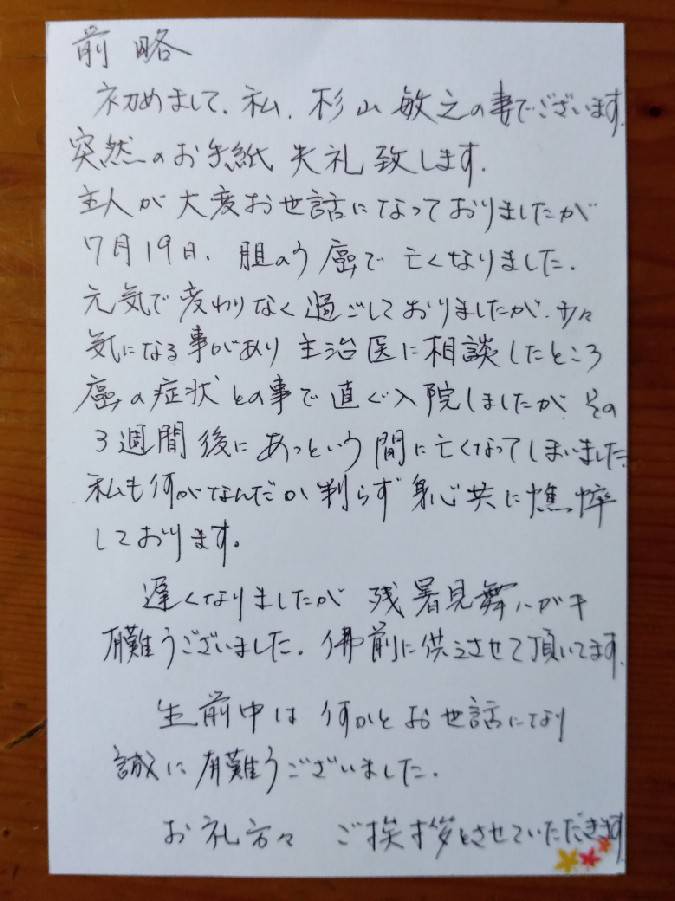 前略
初めまして、私、杉山敏之の妻でございます。
突然のお手紙失礼致します。
主人が大変お世話になっておりましたが
7月19日、胆のう癌で亡くなりました。
元気で変わりなく過ごしておりましたが、少々
気になる事があり主治医に相談したところ
癌の症状との事で直ぐ入院しましたが、その
3週間後にあっという間に亡くなってしまいました。
私も何がなんだか判らず身心共に憔悴
しております。
遅くなりましたが残暑見舞ハガキ
有難うございました。佛前に供えさせて頂いてます。
生前中は何かとお世話になり
誠に有難うございました。
お礼方々ご挨拶とさせていただきます